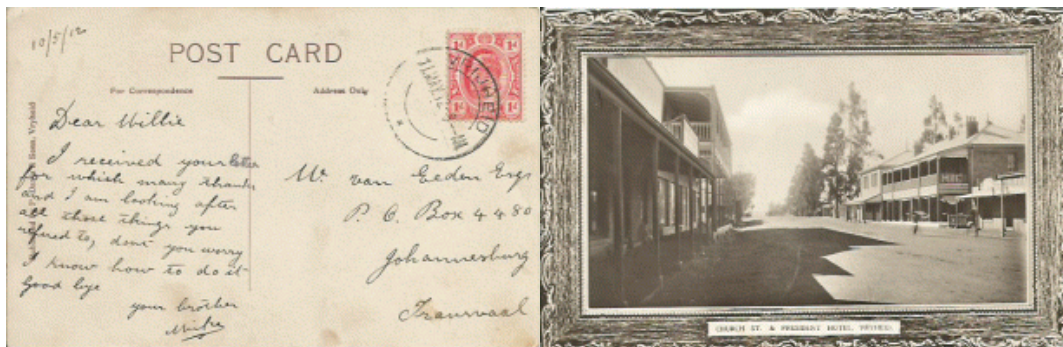 10/5/12
POST CARD
For Correspondence
Address Only
1d 1d
1d 1d
VRYHEID
Dear Willie
I received your letter
for which many thanks
and I am looking after
all those things you
refered to, dont you worry
I know how to do it
Good bye
your brother
Mike
W. van Eeden Esqr
P. O. Box 4480
Johannesburg
Transvaal
Sons, Vryheid
CHURCH ST. & PRESIDENT HOTEL, VRYHEID.
HOTEL